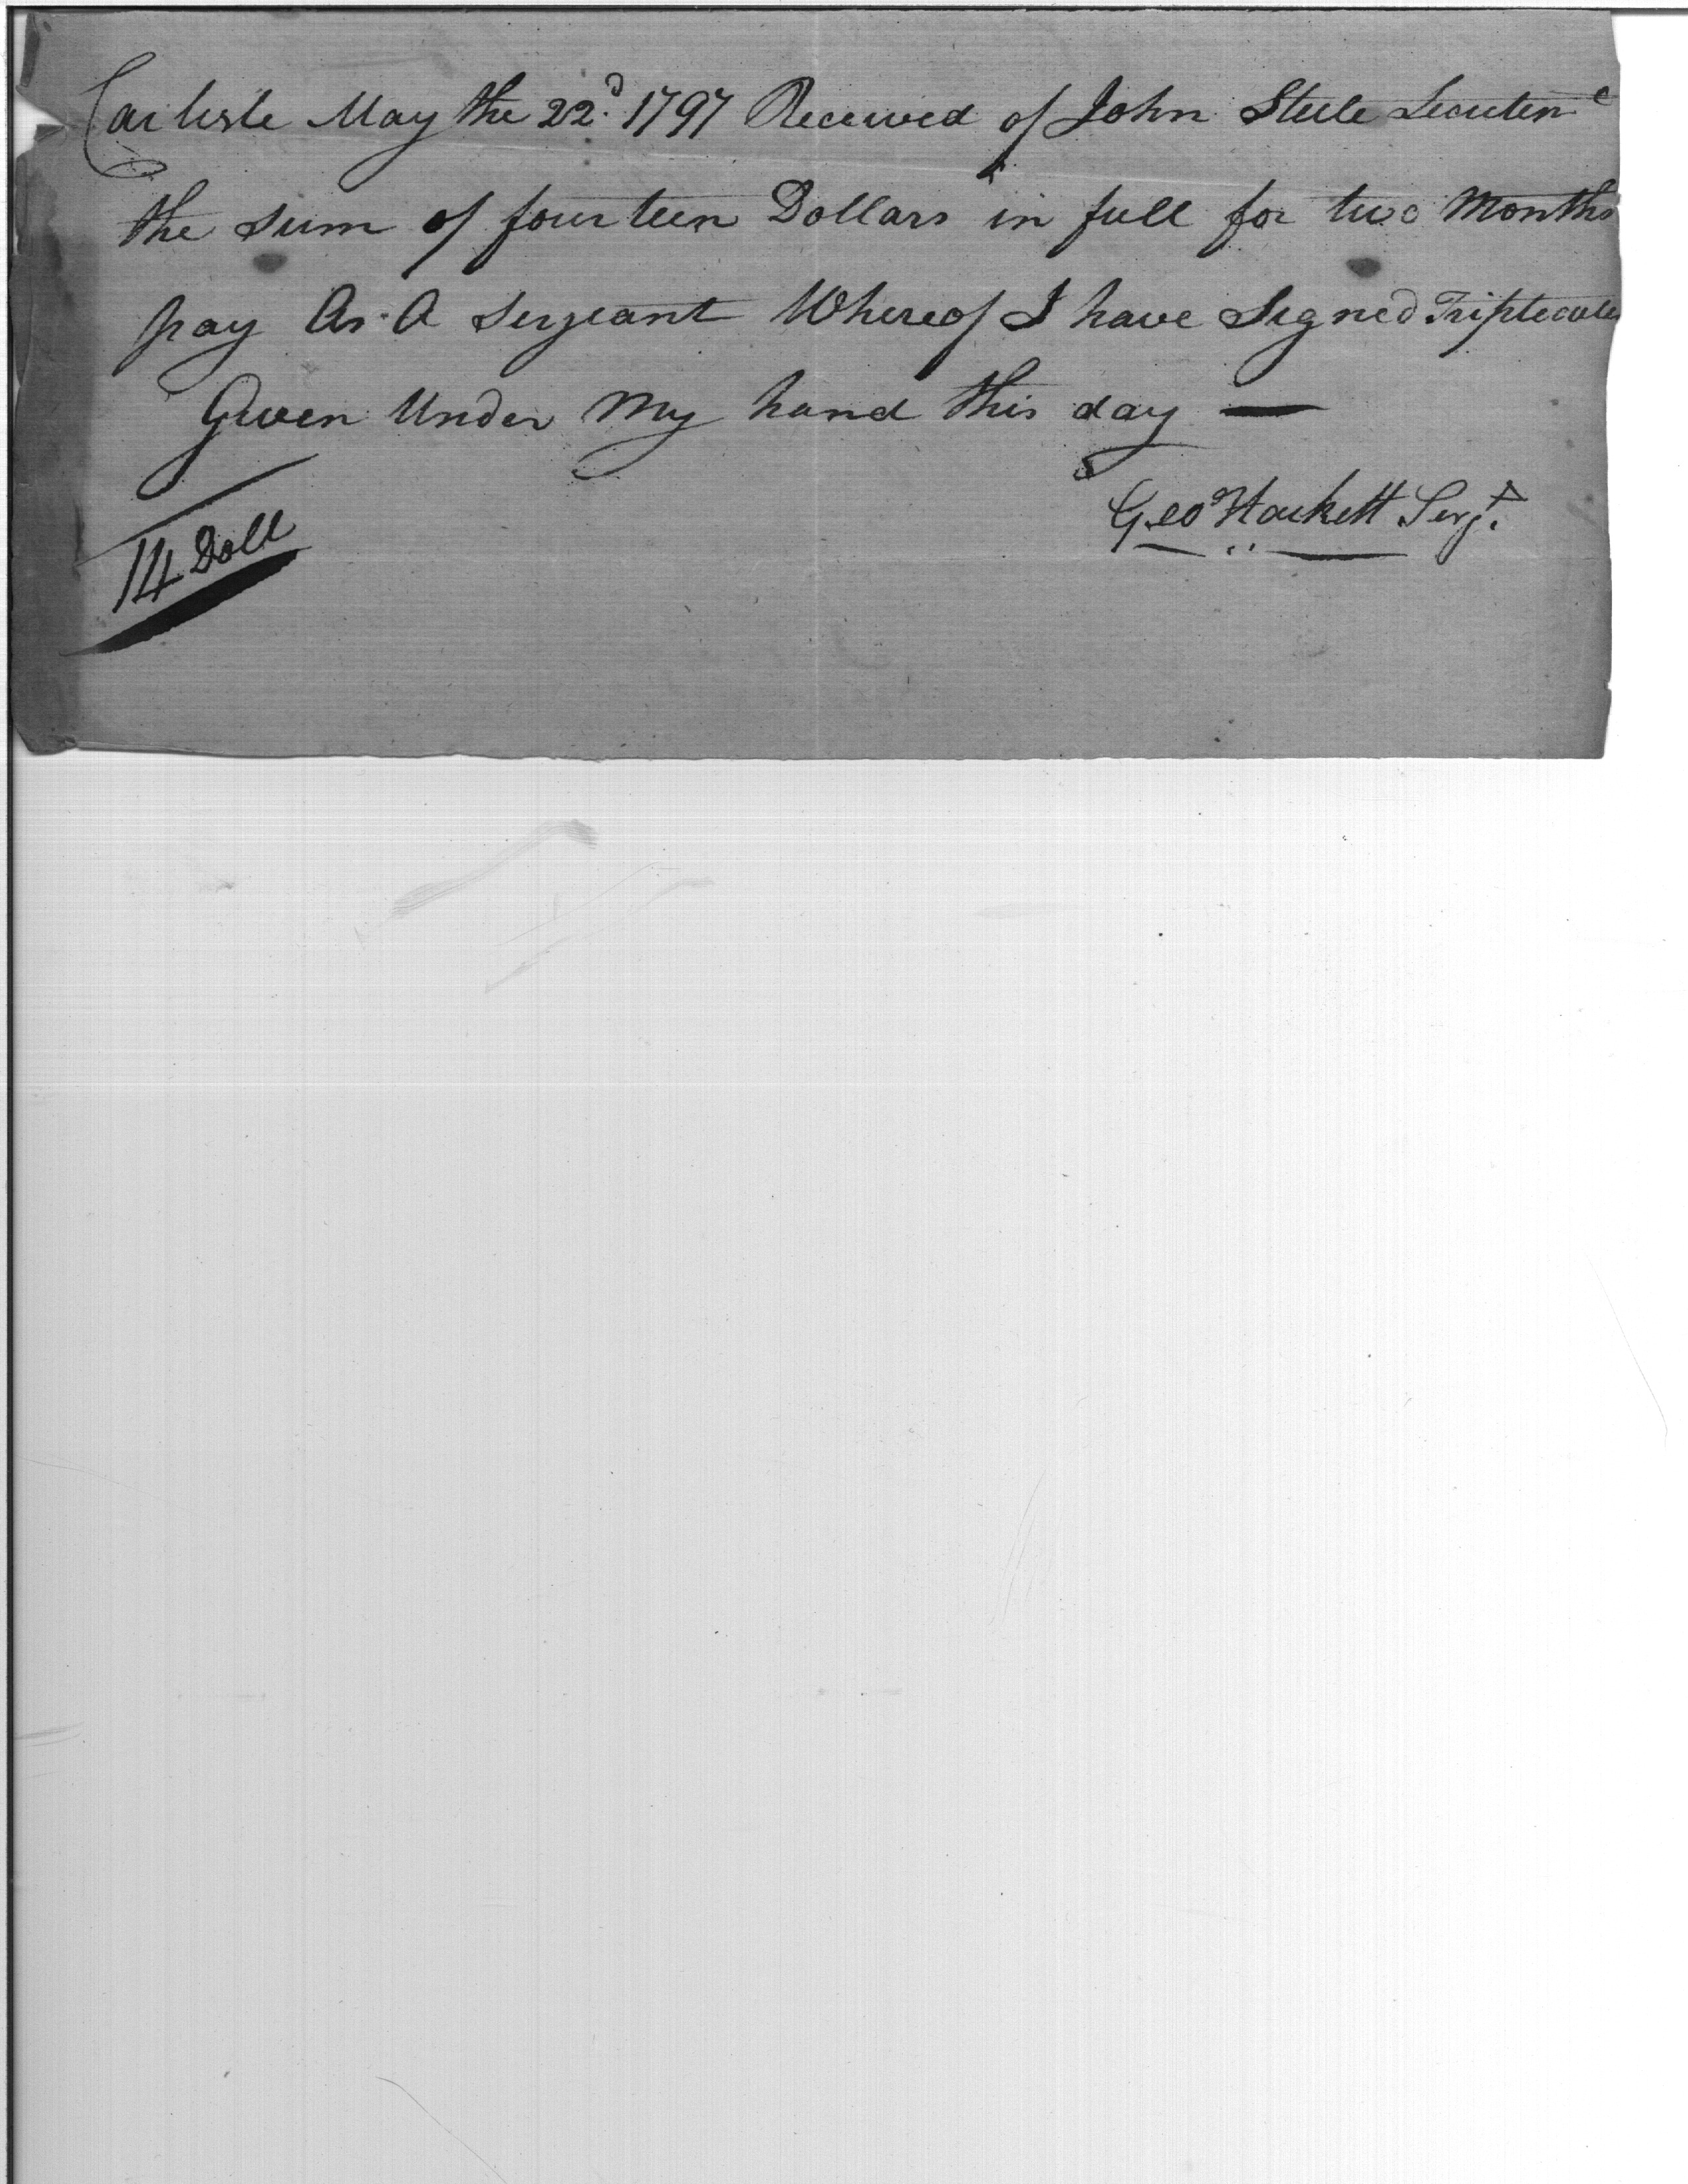 Carlisle May the 22.d 1797 Received of John Steele Leeuten t
the sum of fourteen Dollars in full for two Months
pay As A Sergeant Whereof I have Signed
Given Under My hand this day —
Geo Hackett Serjt.
14 Doll